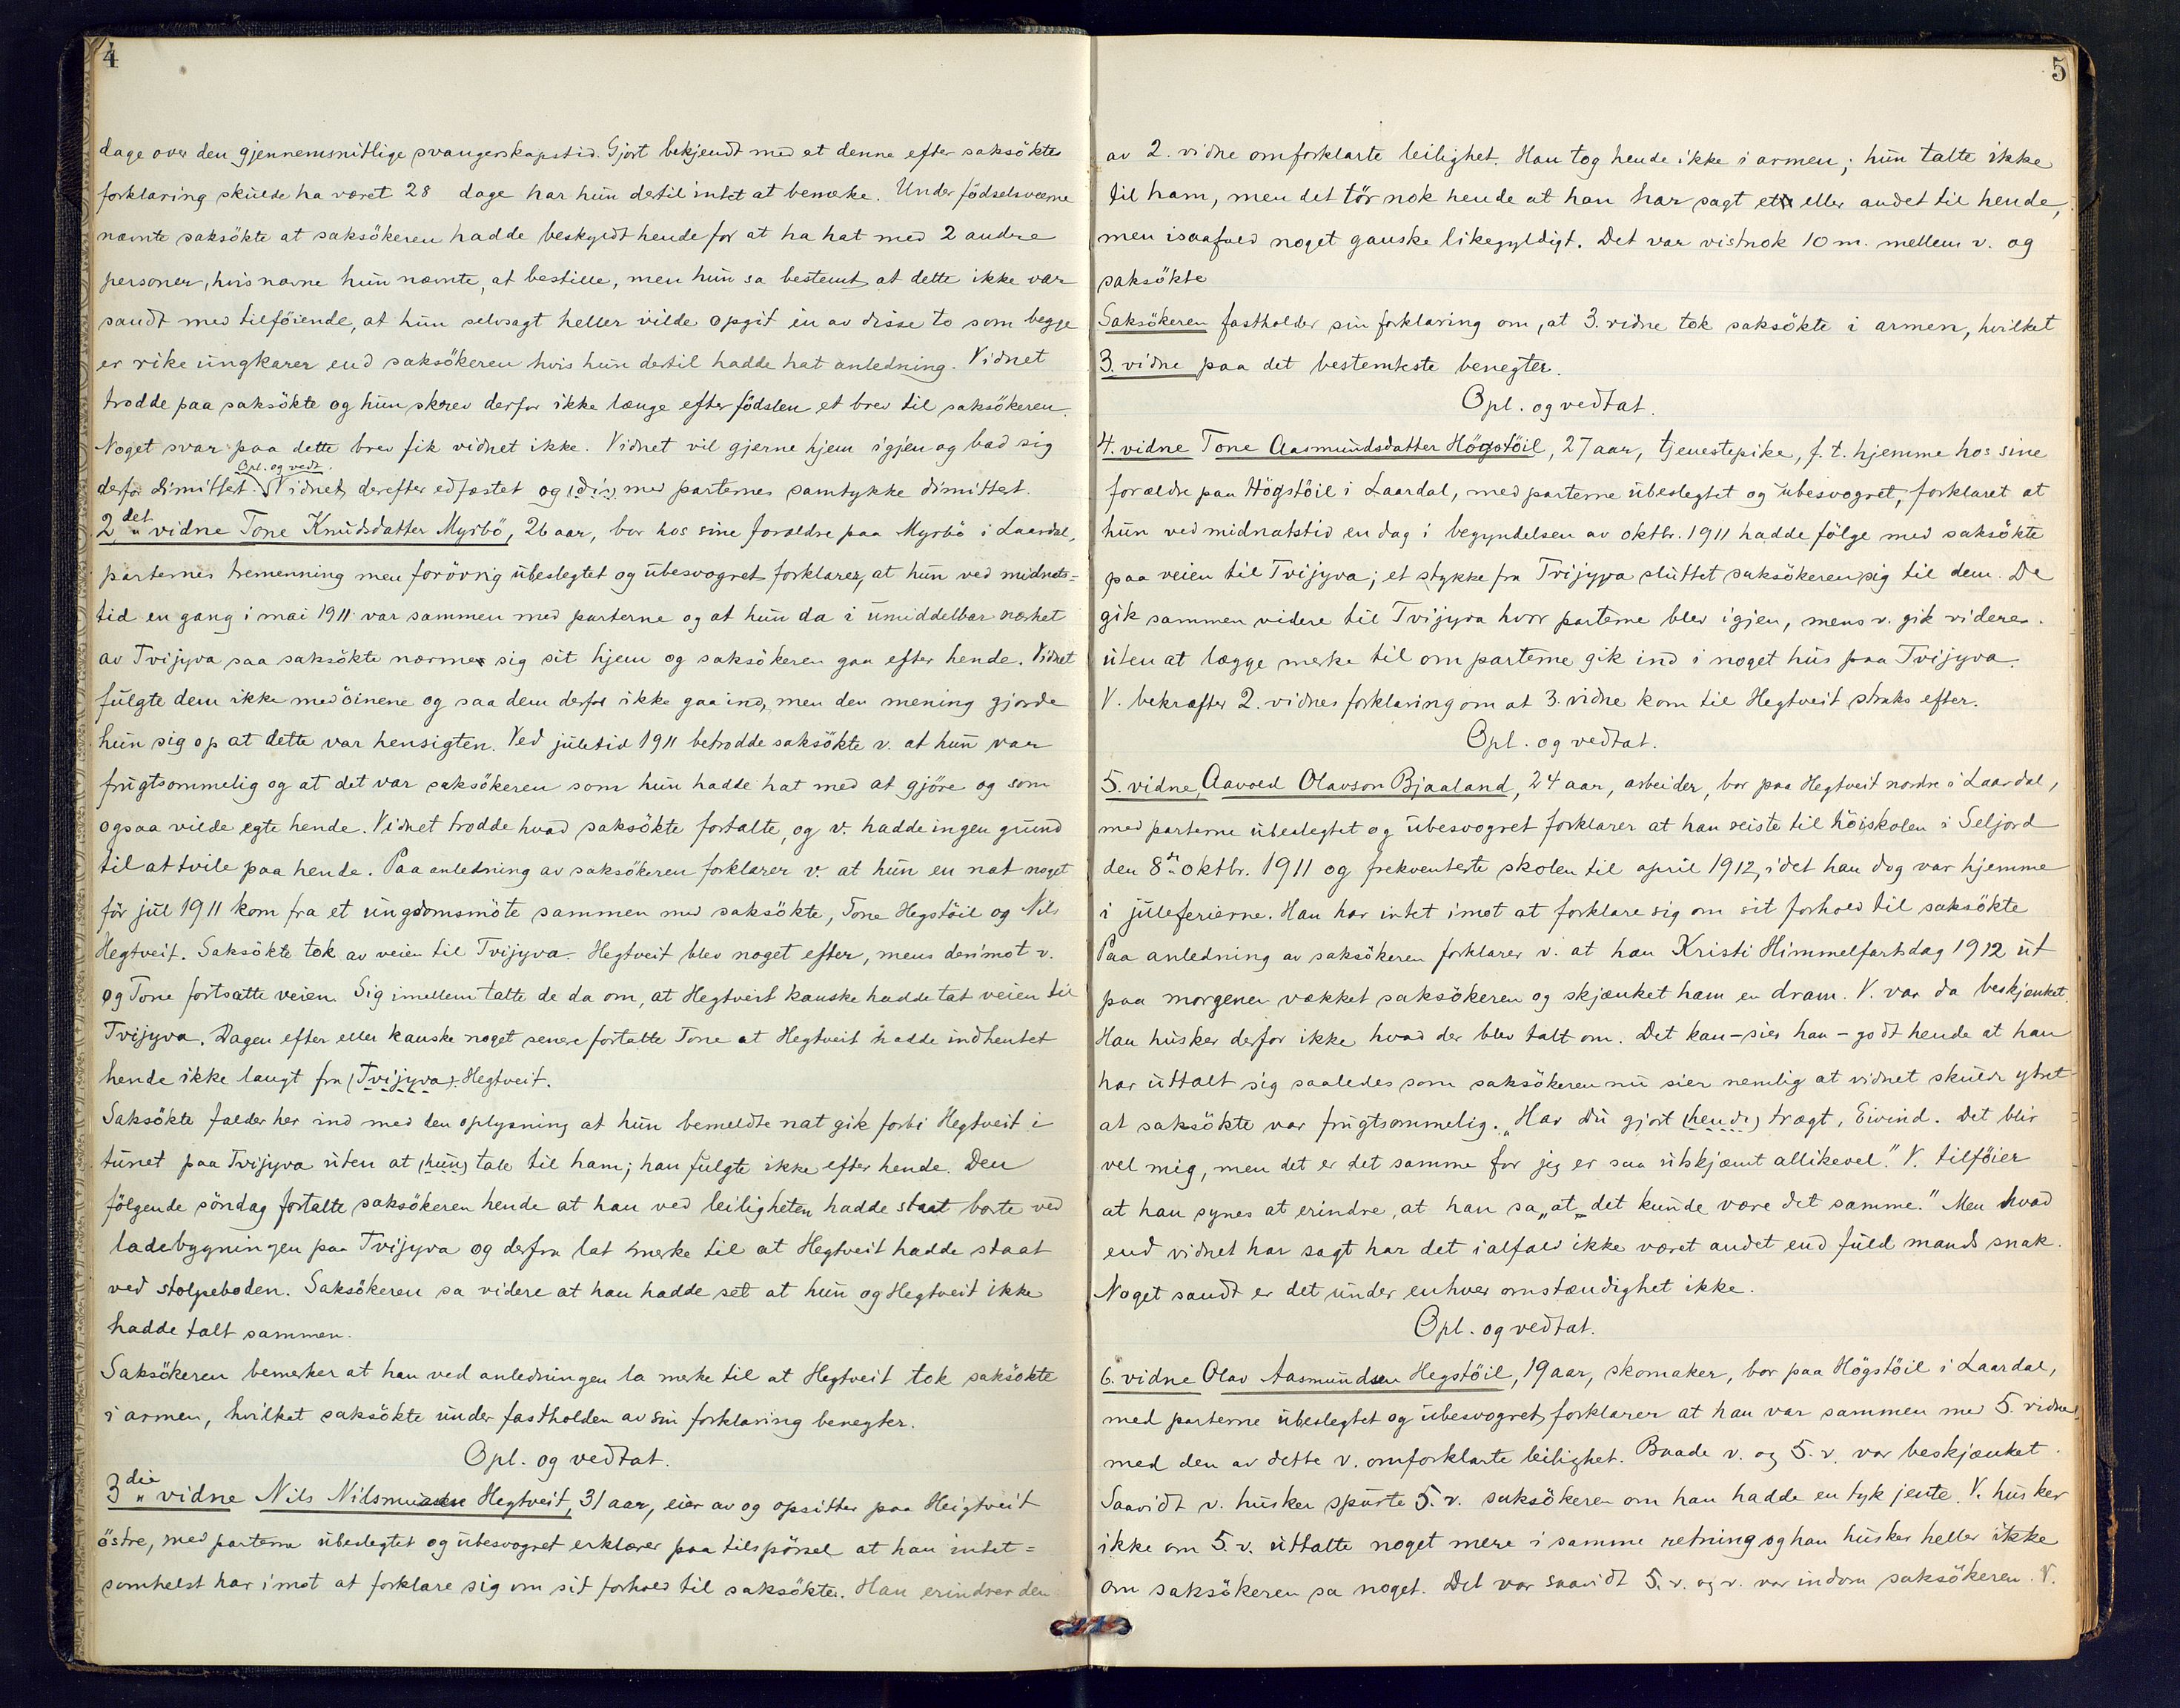 4
dage over den gjennemsnitlige svangerskapstid. Gjort bekjendt med at denne efter saksöktes
forklaring skulde ha været 28 dage har hun dertil intet at bemerke. Under födselsveerne
nævnte saksökte at saksökeren hadde beskyldt hende for at ha hat med 2 andre
personer, hvis navne hun nævnte, at bestille, men hun sa bestemt at dette ikke var
sandt med tilföiende, at hun selvsagt heller vilde opgit en av disse to som begge
er rike ungkarer end saksökeren hvis hun dertil hadde hat anledning. Vidnet
trodde paa saksökte og hun skrev derfor ikke længe efter födslen et brev til saksökeren.
Noget svar paa dette brev fik vidnet ikke. Vidnet vil gjerne hjem igjen og bad sig
Opl. og vedt.
derfor dimittert. Vidnet derefter edfæstet og (di) med parternes samtykke dimittert.
2det vidne Tone Knudsdatter Myrbö, 26 aar, bor hos sine foræeldre paa Myrbö i Laardal,
parternes tremenning men forövrig ubeslegtet og ubesvogret forklarer, at hun ved midnats=
tid en gang i mai 1911 var sammen med parterne og at hun da i umiddelbar nærhet
av Tvijyva saa saksökte nærme sig sit hjem og saksökeren gaa efter hende. Vidnet
fulgte dem ikke med öinene og saa dem derfor ikke gaa ind, men den mening gjorde
hun sig op at dette var hensigten. Ved juletid 1911 betrodde saksökte v. at hun var
frugtsommelig og at det var saksökeren som hun hadde hat med at gjöre og som
ogsaa vilde egte hende. Vidnet trodde hvad saksökte fortalte, og v. hadde ingen grund
til at tvile paa hende. Paa anledning av saksökeren forklarer v. at hun en nat noget
för jul 1911 kom fra et ungdomsmöte sammen med saksökte, Tone Hegstöil og Nils
Hegtveit. Saksökte tok av veien til Tvijyva. Hegtveit blev noget efter, mens derimot v.
og Tone fortsatte veien. Sig imellem talte de da om, at Hegtveit kanske hadde tat veien til
Tvijyva. Dagen efter eller kanske noget senere fortalte Tone at Hegtveit hadde indhentet
hende ikke langt fra (Tvijyva) Hegtveit.
Saksökte falder her ind med den oplysning at hun bemeldte nat gik forbi Hegtveit i
tunet paa Tvijyva uten at (hun) tale til ham; han fulgte ikke efter hende. Den
fölgende söndag fortalte saksökeren hende at han ved leiligheten hadde staat borte ved
ladebygningen paa Tvijyva og derfra lat merke til at Hegtveit hadde staat
ved stolpeboden. Saksökeren sa videre at han hadde set at hun og Hegtveit ikke
hadde talt sammen.
Saksökeren bemerker at han ved anledningen la merke til at Hegtveit tok saksökte
i armen, hvilket saksökte under fastholden av sin forklaring benegter.
Opl. og vedtat.
3die vidne Nils Nilsen Hegtveit, 31 aar, eier av og opsitter paa Heigtveit
östre, med parterne ubeslegtet og ubesvogret erklærer paa tilspörsel at han intet=
somhelst har imot at forklare sig om sit forhold til saksökte. Han erindrer den
5
av 2. vidne omforklarte leilighet. Han tog hende ikke i armen; hun talte ikke
til ham, men det tör nok hende at han har sagt et eller andet til hende,
men isaafald noget ganske likegyldigt. Det var vistnok 10 m. mellem v. og
saksökte
Saksökeren fastholder sin forklaring om, at 3. vidne tok saksökte i armen, hvilket
3. vidne paa det bestemteste benegter.
Opl. og vedtat.
4. vidne Tone Aasmundsdatter Högstöil, 27 aar, tjenestepike, f. t. hjemme hos sine
forældre paa Högstöil i Laardal, med parterne ubeslegtet og ubesvogret, forklaret at
hun ved midnatstid en dag i begyndelsen av oktbr. 1911 hadde fölge med saksökte
paa veien til Tvijyva; et stykke fra Tvijyva sluttet saksökeren sig til dem. De
gik sammen videre til Tvijyva hvor parterne blev igjen, mens v. gik videre
uten at lægge merke til om parterne gik ind i noget hus paa Tvijyva.
V. bekræfter 2. vidnes forklaring om at 3. vidne kom til Hegtveit straks efter.
Opl. og vedtat.
5. vidne, Aavold Olavson Bjaaland, 24 aar, arbeider, bor paa Hegtveit nordre i Laardal,
med parterne ubeslegtet og ubesvogret forklarer at han reiste til höiskolen i Seljord
den 8de oktbr. 1911 og frekventerte skolen til april 1912, idet han dog var hjemme
i juleferierne. Han har intet imot at forklare sig om sit forhold til saksökte
Paa anledning av saksökeren forklarer v. at han Kristi Himmelfartsdag 1912 ut
paa morgenen vækket saksökeren og skjænket ham en dram. V. var da beskjænket.
Han husker derfor ikke hvad der blev talt om. Det kan – sier han – godt hende at han
har uttalt sig saaledes som saksökeren nu sier nemlig at vidnet skulde ytret
at saksökte var frugtsommelig. „Har du gjort (hende) trægt, Eivind. Det blir
vel mig, men det er det samme for jeg er saa utskjæmt allikevel." V. tilföier
at han synes at erindre, at han sa „at det kunde være det samme." Men hvad
end vidnet har sagt har det ialfald ikke været andet end fuld mands snak.
Noget sandt er det under enhver omstændighet ikke.
Opl. og vedtat.
6. vidne Olav Aasmundsen Hegstöil, 19 aar, skomaker, bor paa Högstöil i Laardal,
med parterne ubeslegtet og ubesvogret, forklarer at han var sammen med 5. vidne
med den av dette v. omforklarte leilighet. Baade v. og 5. v. var beskjænket.
Saavidt v. husker spurte 5. v. saksökeren om han hadde en tyk jente. V. husker
ikke om 5. v. uttalte noget mere i samme retning og han husker heller ikke
om saksökeren sa noget. Det var saavidt 5. v. og v. var indom saksökeren. V.